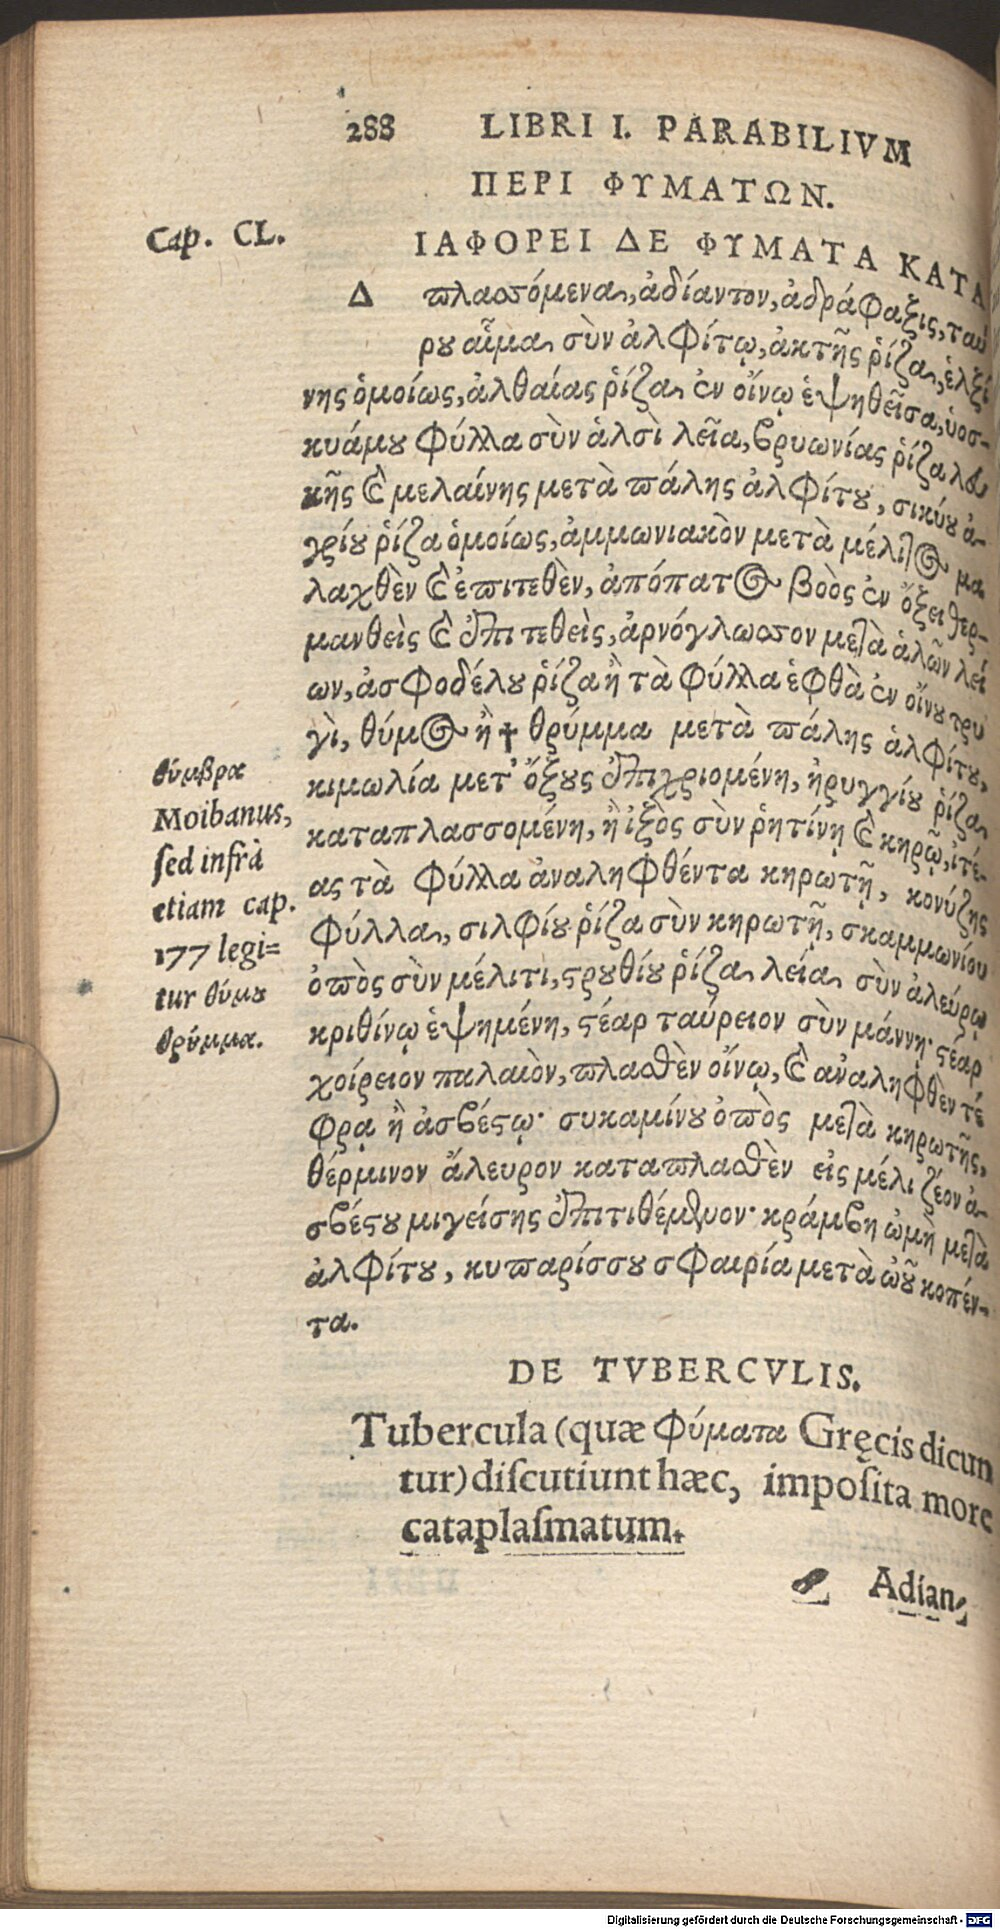 288 LIBRI I. PARABILIVM
ΠΕΡΙ ΦΥΜΑΤΩΝ.
Cap. CL.
ΙΑΦΟΡΕΙ ΔΕ ΦΥΜΑΤΑ ΚΑΤΑ
Δ πλασσόμενα, ἀδίαντον, ἀδράφαξις, ταύ
ρου αἷμα σὺν ἀλφίτῳ, ἀκτῆς ῥίζα, ἑλξί
νης ὁμοίως, ἀλθαίας ῥίζα ἐν οἴνῳ ἑψηθεῖσα, ὑοσ-
κυάμου φύλλα σὺν ἁλσὶ λεῖα, βρυωνίας ῥίζα λδ
κῆς καὶ μελαίνης μετὰ πάλης ἀλφίτου, σικύου ἀ-
γρίου ῥίζα ὁμοίως, ἀμμωνιακὸν μετὰ μέλιτος μα
λαχθὲν καὶ ἐπιτεθὲν, ἀπόπατος βοὸς ἐν ὄξει θερ-
μανθεὶς καὶ ἐπιτεθεὶς, ἀρνόγλωσσον μετὰ ἁλῶν λεί
ων, ἀσφοδέλου ῥίζα ἢ τὰ φύλλα ἑφθὰ ἐν οἴνου τρυ
γὶ, θύμος ἢ † θρύμμα μετὰ πάλης ἀλφίτου,
κιμωλία μετ' ὄξους ἐπιχριομένη, ἠρυγγίου ῥίζα
καταπλασσομένη, ἢ ἰξὸς σὺν ῥητίνῃ καὶ κηρῷ, ἰτέ-
ας τὰ φύλλα ἀναληφθέντα κηρωτῇ, κονύζης
φύλλα, σιλφίου ῥίζα σὺν κηρωτῇ, σκαμμωνίου
ὀπὸς σὺν μέλιτι, στρουθίου ῥίζα λεία σὺν ἀλεύρῳ
κριθίνῳ ἑψημένη, στέαρ ταύρειον σὺν μάννῃ· στέαρ
χοίρειον παλαιὸν, πλασθὲν οἴνῳ, καὶ ἀναληφθὲν τέ
φρᾳ ἢ ἀσβέστῳ· συκαμίνου ὀπὸς μετὰ κηρωτῆς,
θέρμινον ἄλευρον καταπλασθὲν εἰς μέλι ζέον ἀ-
σβέστου μιγείσης ἐπιτιθέμενον· κράμβη ὠμὴ μετὰ
ἀλφίτου, κυπαρίσσου σφαιρία μετὰ ὠοῦ κοπέν-
τα.
θύμβρα
Moibanus,
sed infrà
etiam cap.
177 legi=
tur θύμου
θρύμμα.
DE TVBERCVLIS.
Tubercula (quæ φύματα Gręcis dicun
tur) discutiunt hæc, imposita more
cataplasmatum.
Adian-
Digitalisierung gefördert durch die Deutsche Forschungsgemeinschaft - DFG